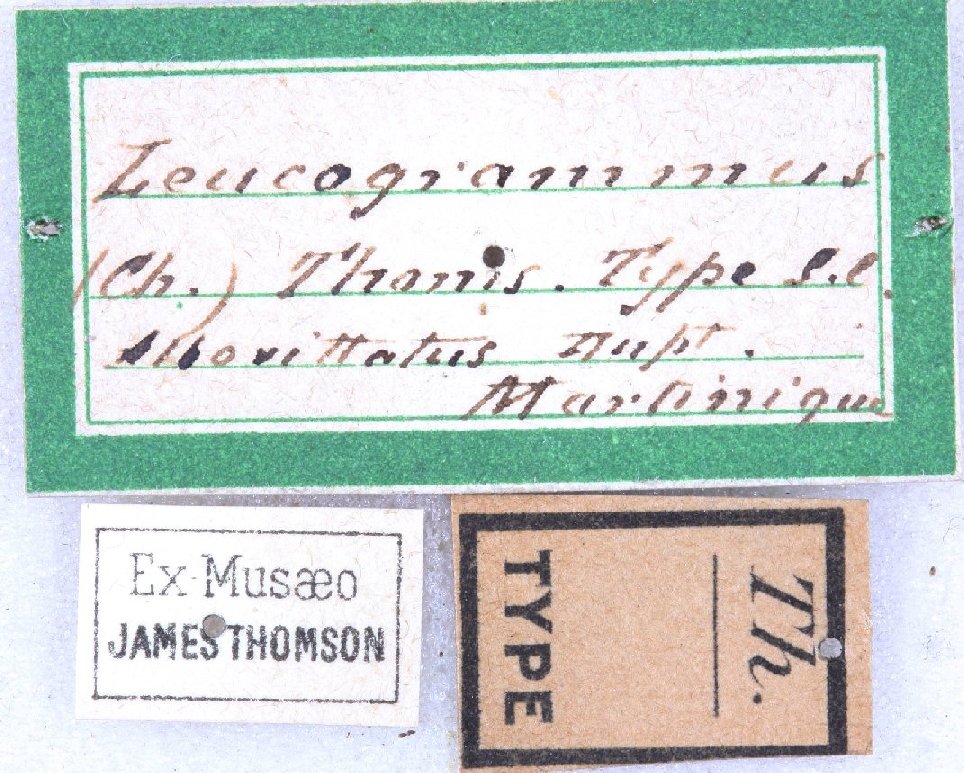 Leucogrammus
(Ch.) Thoms. Type S.C.
albovittatus Dupt.
Martinique
Ex Musæo
JAMES THOMSON
Th.
TYPE